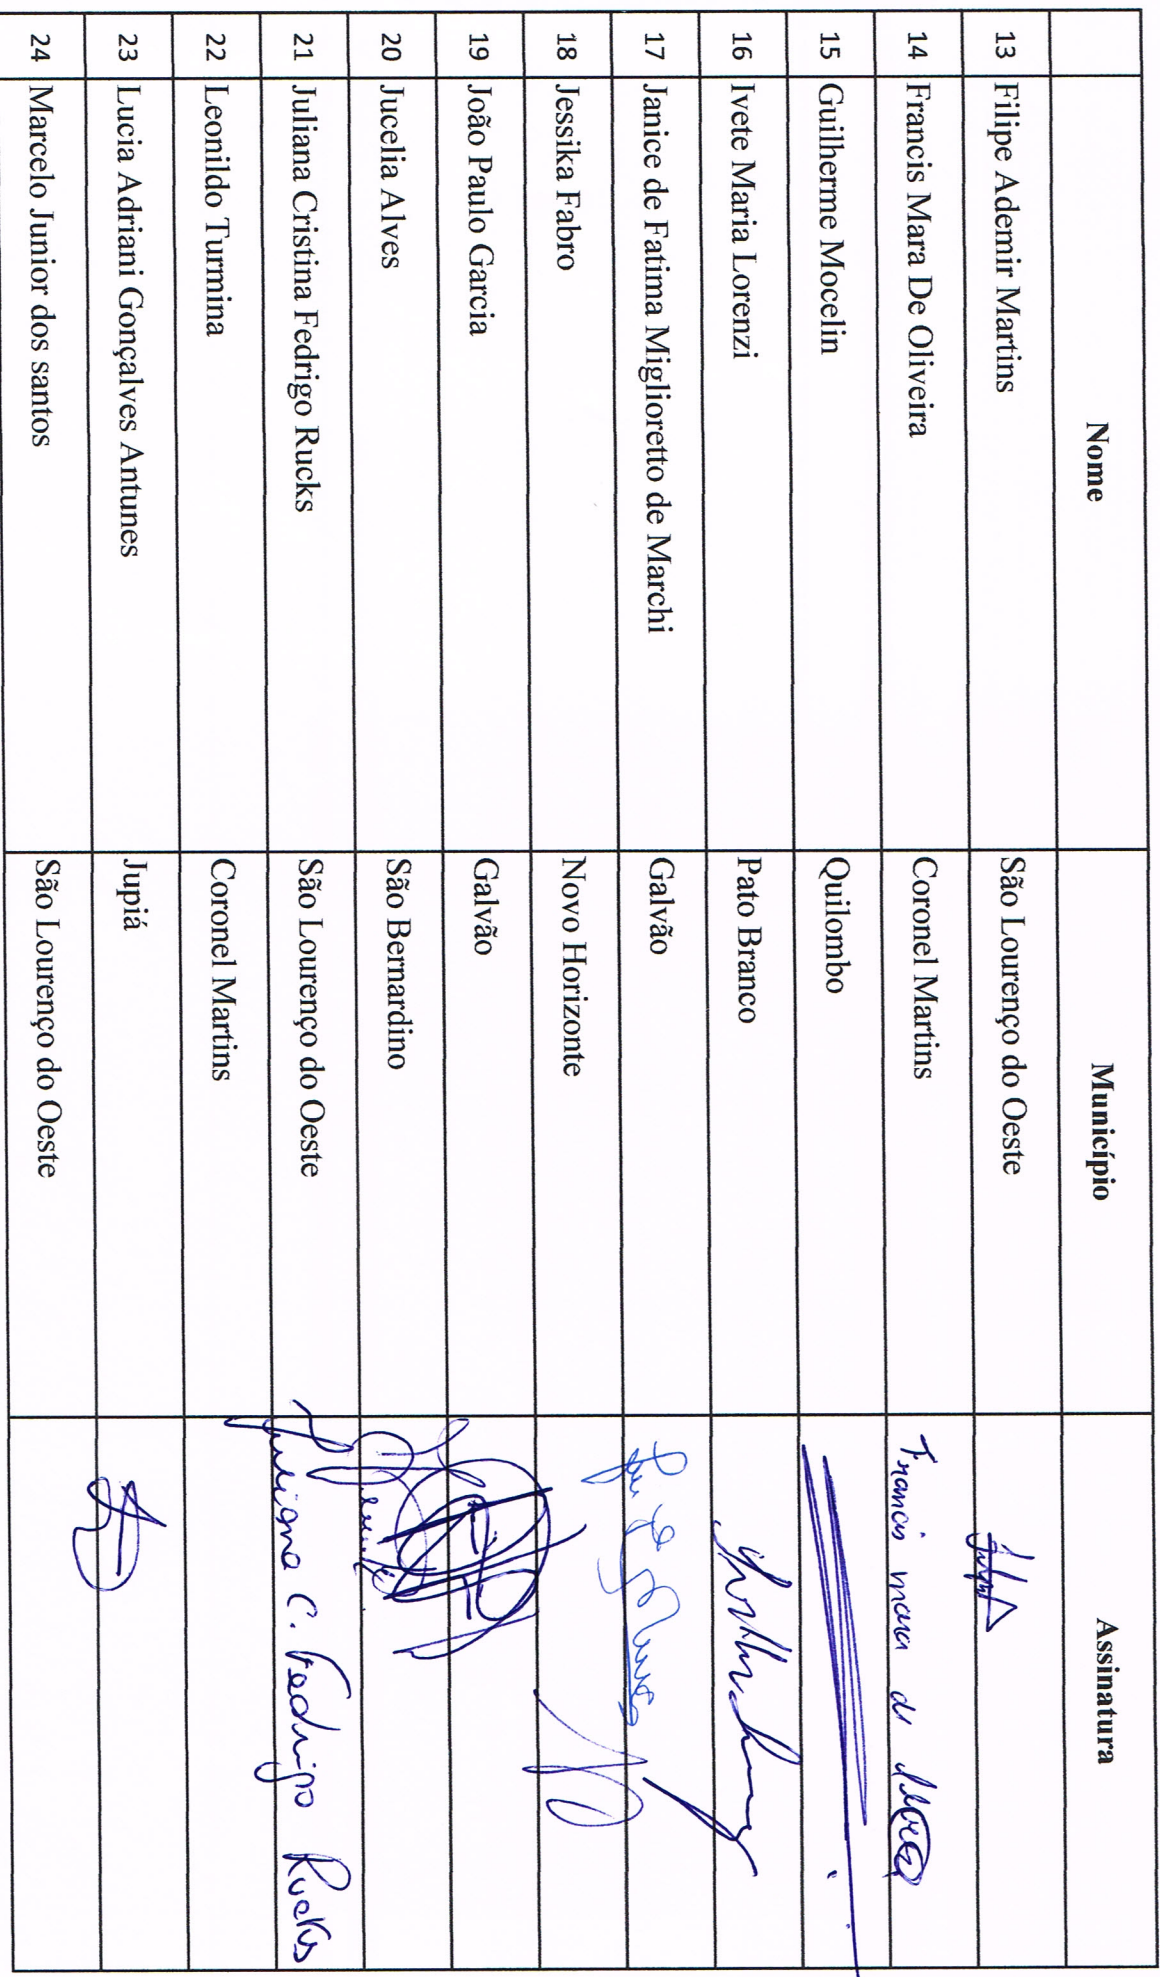 Nome Município Assinatura
13 Filipe Ademir Martins São Lourenço do Oeste
14 Francis Mara De Oliveira Coronel Martins Francis mara de
15 Guilherme Mocelin Quilombo
16 Ivete Maria Lorenzi Pato Branco
17 Janice de Fatima Miglioretto de Marchi Galvão
18 Jessika Fabro Novo Horizonte
19 João Paulo Garcia Galvão
20 Jucelia Alves São Bernardino
21 Juliana Cristina Fedrigo Rucks São Lourenço do Oeste Juliana C. Fedrigo Rucks
22 Leonildo Turmina Coronel Martins
23 Lucia Adriani Gonçalves Antunes Jupiá
24 Marcelo Junior dos santos São Lourenço do Oeste